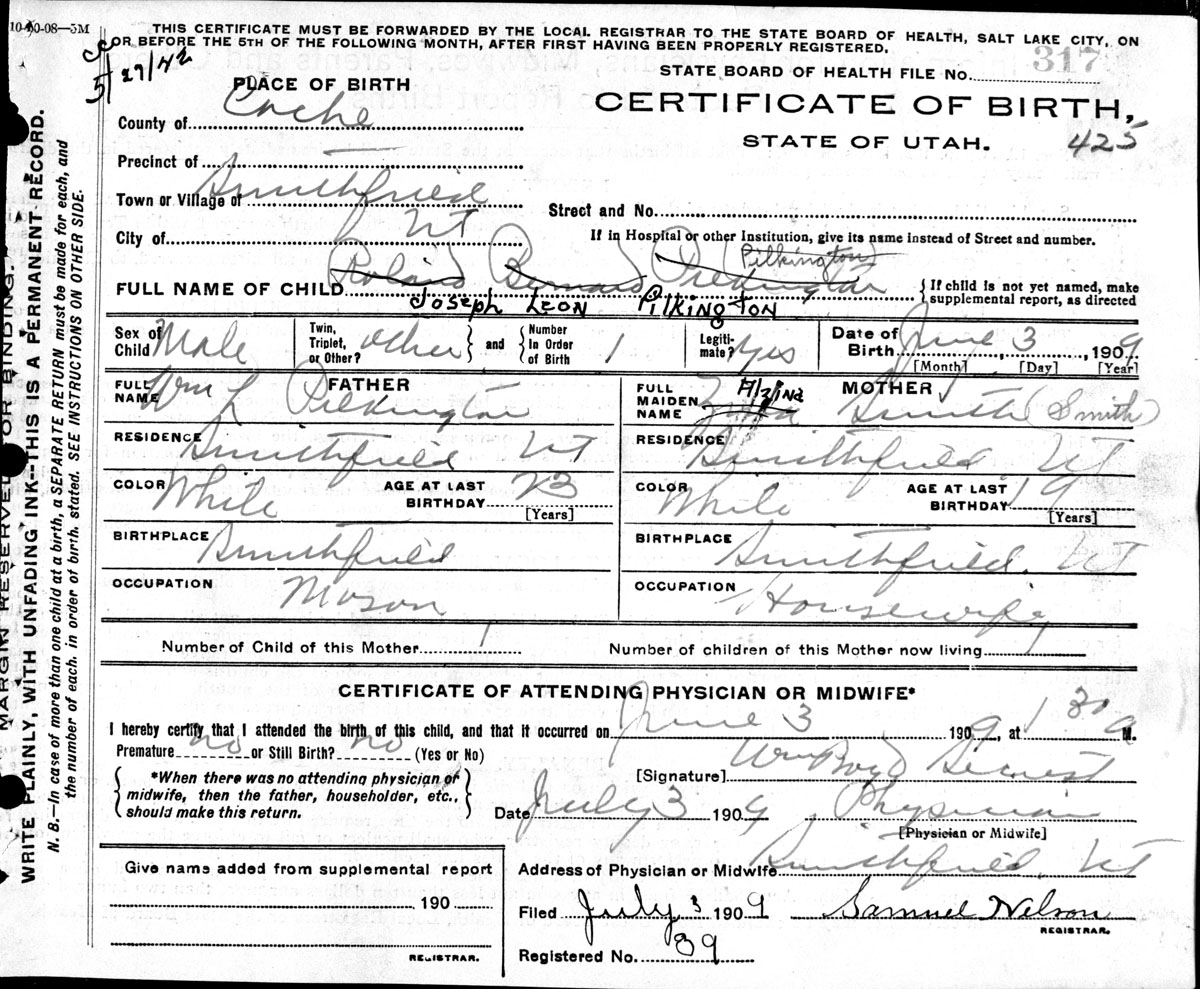 10-30-08—3M
THIS CERTIFICATE MUST BE FORWARDED BY THE LOCAL REGISTRAR TO THE STATE BOARD OF HEALTH, SALT LAKE CITY, ON
OR BEFORE THE 5TH OF THE FOLLOWING MONTH, AFTER FIRST HAVING BEEN PROPERLY REGISTERED.
5/27/42
STATE BOARD OF HEALTH FILE No. 317
PLACE OF BIRTH
CERTIFICATE OF BIRTH,
STATE OF UTAH.
425
County of Cache
Precinct of
Town or Village of Smithfield
Street and No.
City of UT
If in Hospital or other Institution, give its name instead of Street and number.
Roland Bernard Pilkington (Pilkington)
FULL NAME OF CHILD Joseph LEON PILKINGTON
{If child is not yet named, make
supplemental report, as directed
Sex of Child Male
Twin, Triplet, or Other? other } and { Number In Order of Birth 1
Legiti-mate? Yes
Date of Birth June 3, 1909
[Month] [Day] [Year]
FATHER
FULL NAME Wm L Pilkington
RESIDENCE Smithfield UT
COLOR White
AGE AT LAST BIRTHDAY 23
[Years]
BIRTHPLACE Smithfield
OCCUPATION Mason
MOTHER
FULL MAIDEN NAME Smith (Smith)
RESIDENCE Smithfield UT
COLOR White
AGE AT LAST BIRTHDAY 19
[Years]
BIRTHPLACE Smithfield, UT
OCCUPATION Housewife
Number of Child of this Mother 1
Number of children of this Mother now living 1
CERTIFICATE OF ATTENDING PHYSICIAN OR MIDWIFE*
I hereby certify that I attended the birth of this child, and that it occurred on June 3 1909, at 1 30 a M.
Premature no or Still Birth? no (Yes or No)
{*When there was no attending physician or
midwife, then the father, householder, etc.,
should make this return.}
[Signature] Wm
Date July 3 1909 Physician
[Physician or Midwife]
Address of Physician or Midwife Smithfield, UT
Give name added from supplemental report
190
REGISTRAR.
Filed July 3 1909 Samuel Nelson
REGISTRAR.
Registered No. 39
MARGIN RESERVED FOR BINDING.
WRITE PLAINLY, WITH UNFADING INK--THIS IS A PERMANENT RECORD.
N. B.—In case of more than one child at a birth, a SEPARATE RETURN must be made for each, and
the number of each, in order of birth, stated. SEE INSTRUCTIONS ON OTHER SIDE.